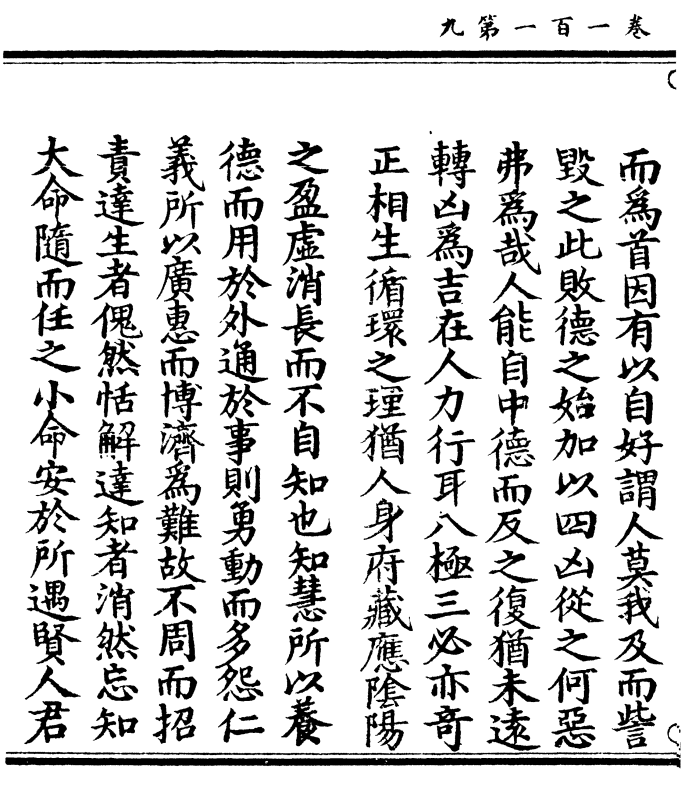 卷一百一第九
而爲首因有以自好謂人莫我及而訾
毀之此敗德之始加以四凶從之何惡
弗爲哉人能自中德而反之復猶未遠
轉凶爲吉在人力行耳八極三必亦竒
正相生循環之理猶人身府藏應隂陽
之盈虚消長而不自知也知慧所以養
德而用於外通於事則勇動而多怨仁
義所以廣惠而博濟爲難故不周而招
責達生者傀然恬解達知者消然忘知
大命隨而任之小命安於所遇賢人君